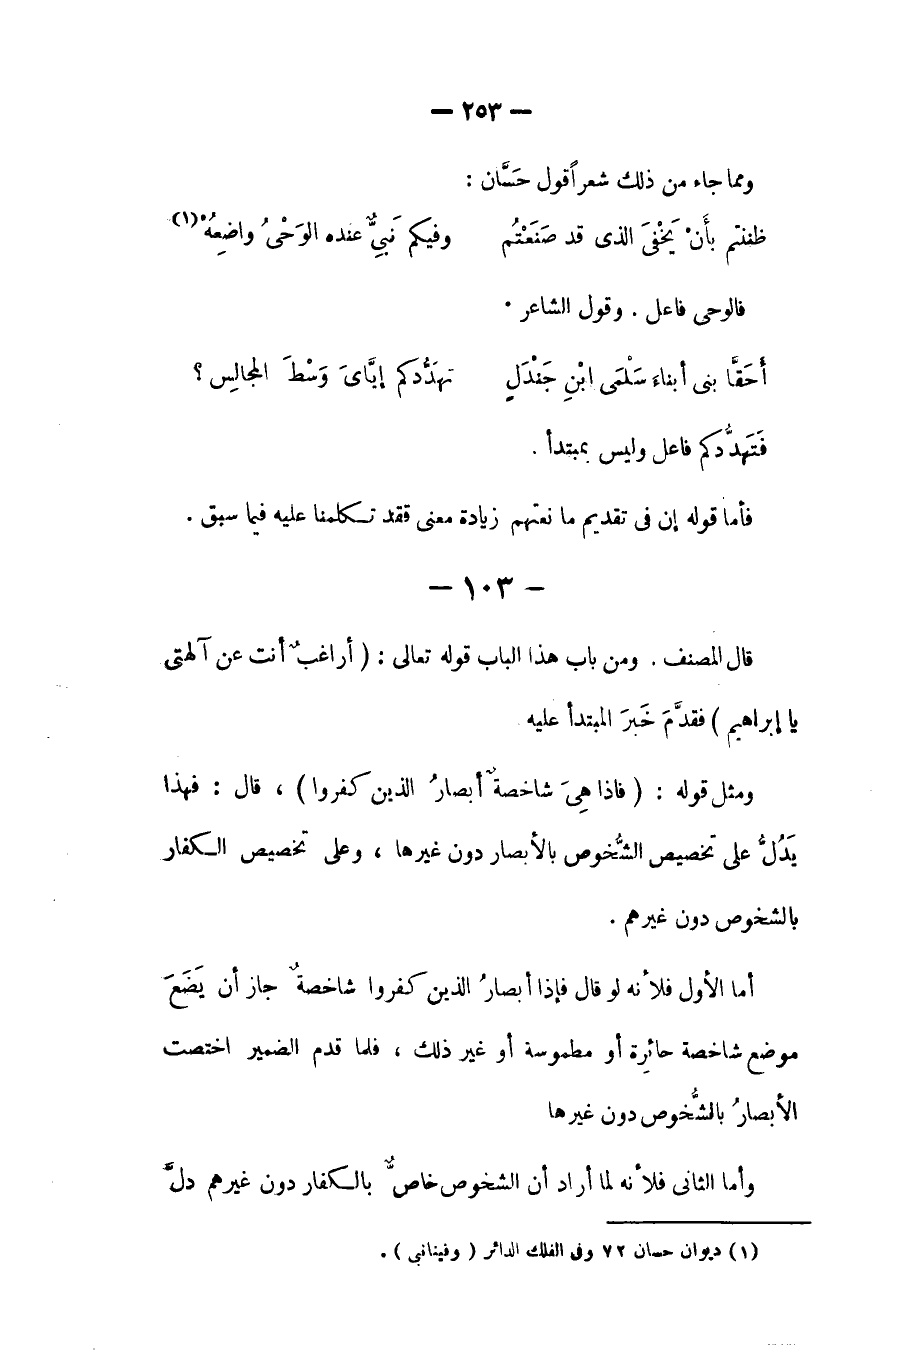 — ٢٥٣ —
ومما جاء من ذلك شعراً قول حَسَّان :
ظننتم بأَنْ يَخْفَى الذى قد صَنَعْتُم وفيكم نَبىٌّ عنده الوَحْىُ واضِعُهْ(١)
فالوحى فاعل . وقول الشاعر ٠
أَحَقَّا بنى أبناءَ سَلْمَى ابْنِ جَنْدَلٍ تهَدُّدكم إيَّاىَ وَسْطَ المجالِس ؟
فَتَهَدُّدكم فاعل وليس بمبتدأ .
فأما قوله إن فى تقديم ما نعتهم زيادة معنى فقد تـكلمنا عليه فيما سبق .
— ١٠٣ —
قال المصنف . ومن باب هذا الباب قوله تعالى : ( أراغبٌ أنت عن آلهتى
يا إبراهيم ) فقدَّمَ خَبَرَ المبتدأ عليه
ومثل قوله : ( فاذا هِىَ شاخصةٌ أبصارُ الذين كفروا ) ، قال : فهذا
يَدُلُّ على تخصيص الشُّخوص بالأبصار دون غيرها ، وعلى تخصيص الـكفار
بالشخوص دون غيرهم .
أما الأول فلأنه لو قال فإذا أبصارُ الذين كفروا شاخصةٌ جاز أن يَضَعَ
موضع شاخصة حائِرة أو مطموسة أو غير ذلك ، فلما قدم الضمير اختصت
الأبصارُ بالشُّخوص دون غيرها
وأما الثانى فلأنه لما أراد أن الشخوص خاصٌّ بالـكفار دون غيرهم دلَّ
(١) ديوان حسان ٧٢ وفى الفلك الدائر ( وفينانبى ) .